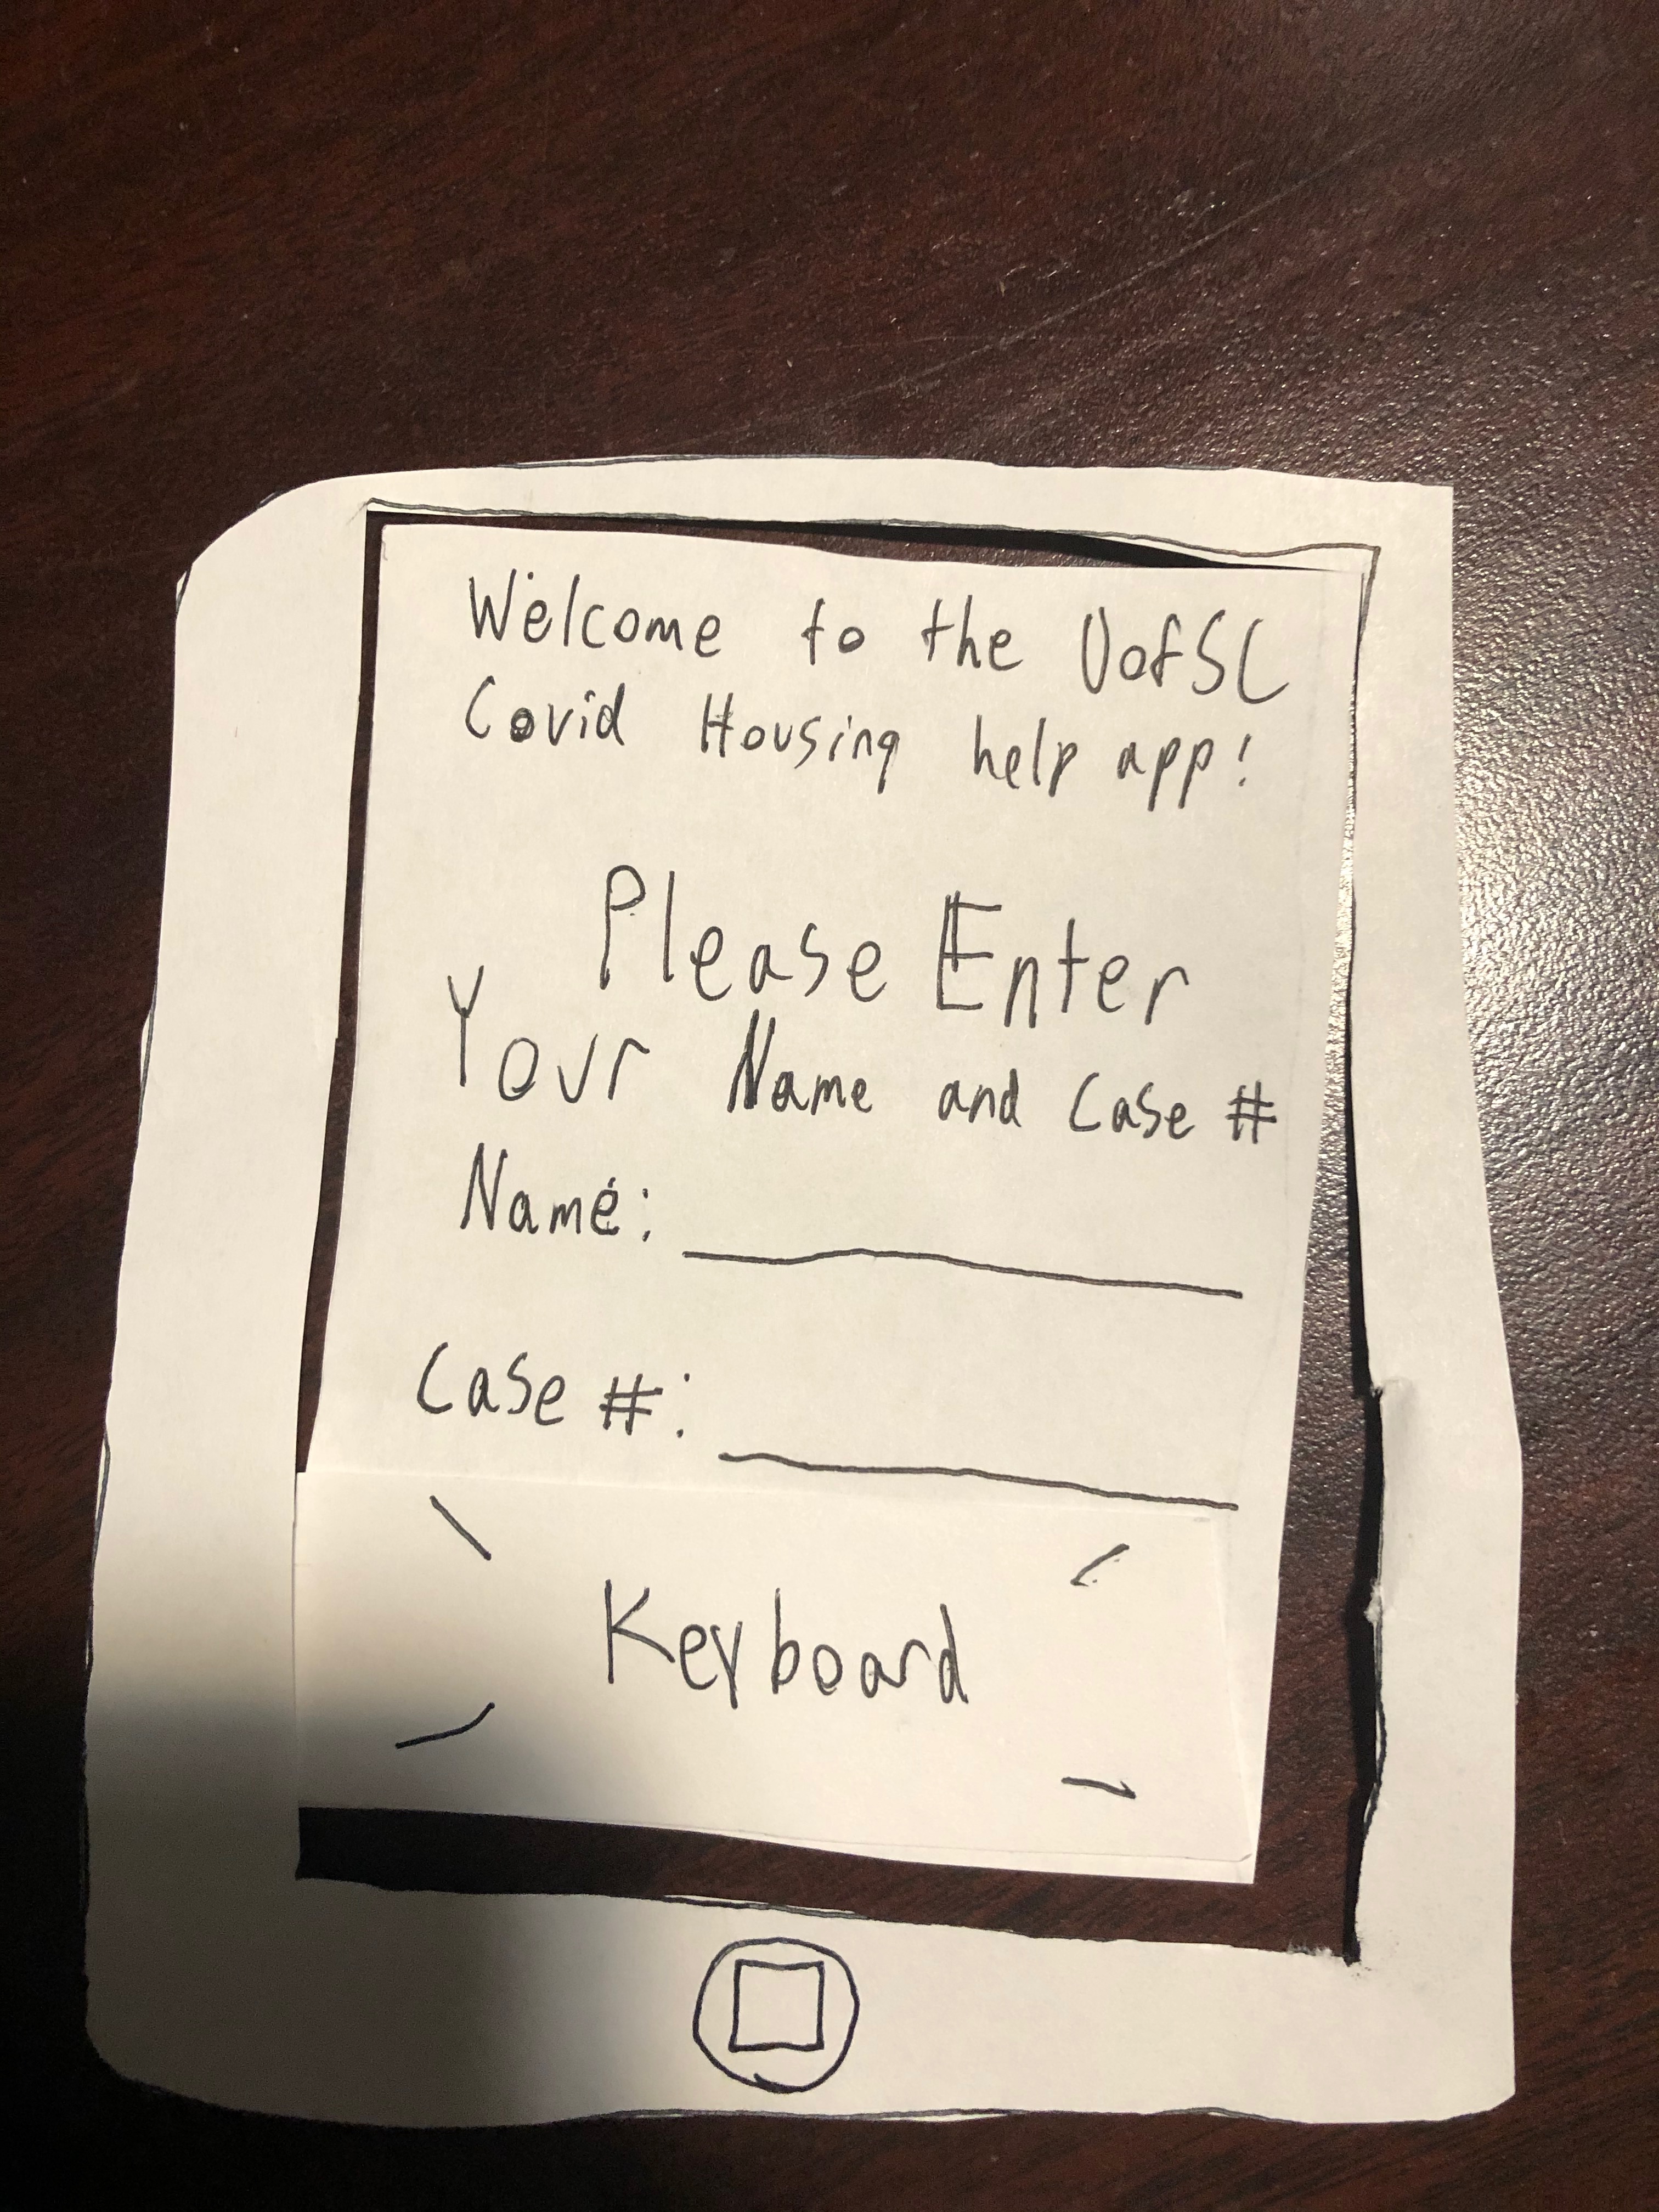 Welcome to the UofSC
Covid Housing help app!
Please Enter
Your Name and Case #
Name:
Case #:
Keyboard